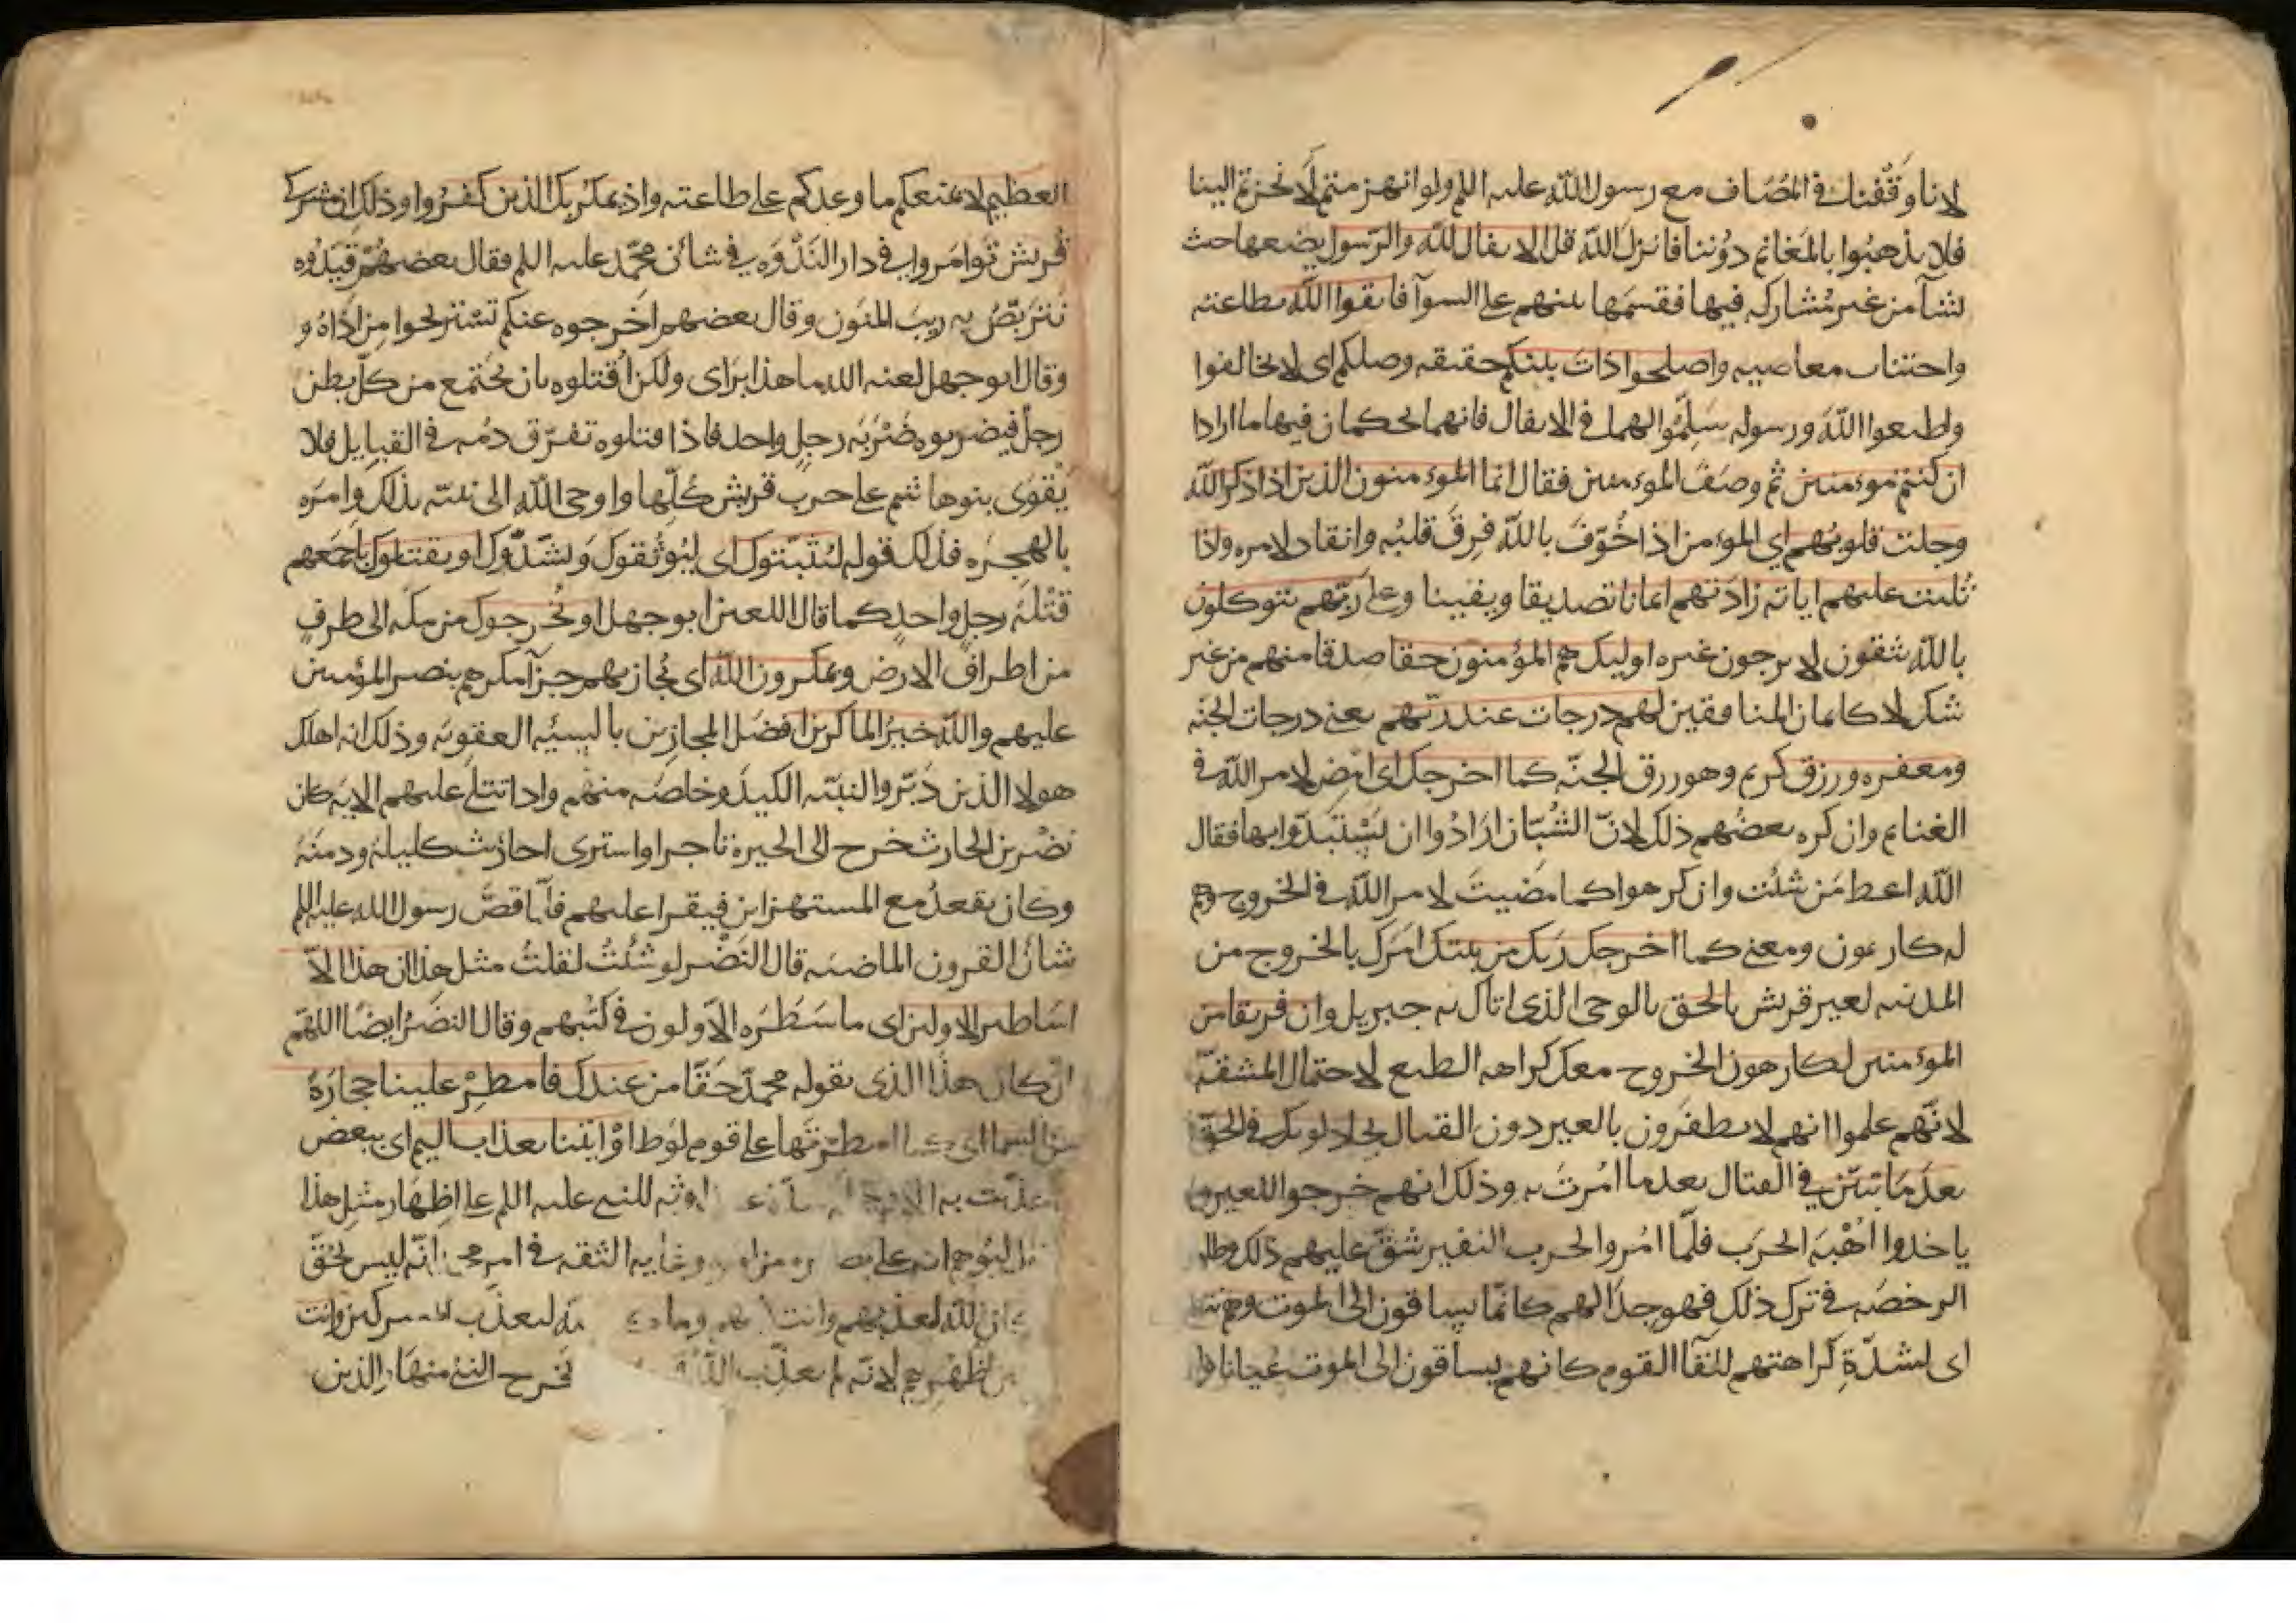 لانا وقفنا في المصاف مع رسول الله عليه السلم ولو انهزمتم لانحزتم الينا
فلا يذهبوا بالمغانم دوننا فانزل الله قل الانفال لله والرسول يضعها حيث
يشآ من غير مشاركه فيها فقسمها بينهم على السوآ فاتقوا الله بطاعته
واجتناب معاصيه واصلحوا ذات بينكم حقيقه وصلكم اي لا تخالفوا
واطيعوا الله ورسوله سلموا اليهما في الانفال فانهما يحكمان فيها ما ارادا
ان كنتم موءمنين ثم وصف الموءمنين فقال انما الموءمنون الذين اذا ذكر الله
وجلت قلوبهم اي الموءمن اذا خوف بالله فرق قلبه وانقاد لامره واذا
تليت عليهم اياته زادتهم ايمانا تصديقا ويقينا وعلى ربهم يتوكلون
بالله يثقون لا يرجون غيره اوليك هم المؤمنون حقا صدقا منهم من غير
شك لا كايمان المنافقين لهم درجات عند ربهم يعني درجات الجنه
ومغفره ورزق كريم وهو رزق الجنه كما اخرجك اي امض لامر الله في
الغنايم وان كره بعضهم ذلك لان الشبان ارادوا ان يستبدوا بها فقال
الله اعط من شئت وان كرهوا كما مضيت لامر الله في الخروج وهم
له كارهون ومعنى كما اخرجك ربك من بيتك امرك بالخروج من
المدينه لعير قريش بالحق بالوحي الذي اتاك به جبريل وان فريقا من
الموءمنين لكارهون الخروح معك كراهه الطبع لاحتمال المشقه
لانهم علموا انهم لا يظفرون بالعير دون القتال يجادلونك في الحق
بعد ما تبين في القتال بعد ما امرت به وذلك انهم خرجوا للعير و
ياخدوا اهبه الحرب فلما امروا لحرب النفير شق عليهم ذلك وطلبوا
الرخصه في ترك ذلك فهو جدالهم كانما يساقون الى الموت وهم
اي لشدة كراهتهم للقآ القوم كانهم يساقون الى الموت عيانا
العظيم لا يمنعكم ما وعدكم على طاعته واذ يمكر بك الذين كفروا وذلك ان مشركي
قريش توامروا في دار الندوه في شان محمد عليه السلم فقال بعضهم قيدوه
نتربص به ريب المنون وقال بعضهم اخرجوه عنكم تستريحوا من اذاه و
وقال ابو جهل لعنه الله ما هذا براي ولكن اقتلوه بان يجتمع من كل بطن
رجل فيضربوه ضربه رجل واحد فاذا قتلوه تفرق دمه في القبايل فلا
يقوى بنو هاشم على حرب قريش كلها واوحى الله الى نبيه بذلك وامره
بالهجره فذلك قوله ليثبتوك اي ليوثقوك ويشدوك او يقتلوك باجمعهم
قتله رجل واحد كما قال اللعين ابو جهل او يخرجوك من مكه الى طرف
من اطراف الارض ويمكرون الله اي يجازيهم جزآ مكرهم بنصر المؤمنين
عليهم والله خير الماكرين افضل المجازين بالسيئه العقوبه وذلك انه اهلك
هولا الذين دبروا لنبيه الكيد وخلصه منهم واذا تتلى عليهم الايه كان
نضر بن الحارث خرح الى الحيره تاجرا واشترى احاديث كليله ودمنه
وكان يقعد مع المستهزاين فيقرا عليهم فلما قص رسول الله عليه السلم
شان القرون الماضيه قال النضر لو شئت لقلت مثل هذا ان هذا الا
اساطير الاولين اي ما سطره الاولون في كتبهم وقال النضر ايضا اللهم
ان كان هذا الذي يقوله محمد حقا من عندك فامطر علينا حجارة
من السما اي كما امطرتها على قوم لوط او ايتنا بعذاب اليم اي ببعض
عذبت به الامم للنبي عليه السلم على اظهار مثل هذا
ليوهم انه على وغايه الثقه في امر انه ليس بحق
كان الله ليعذبهم وانت فيهم وما ليعذب وانت
اظهرهم لانه لم يعذب الله يخرح النبي منها والذين